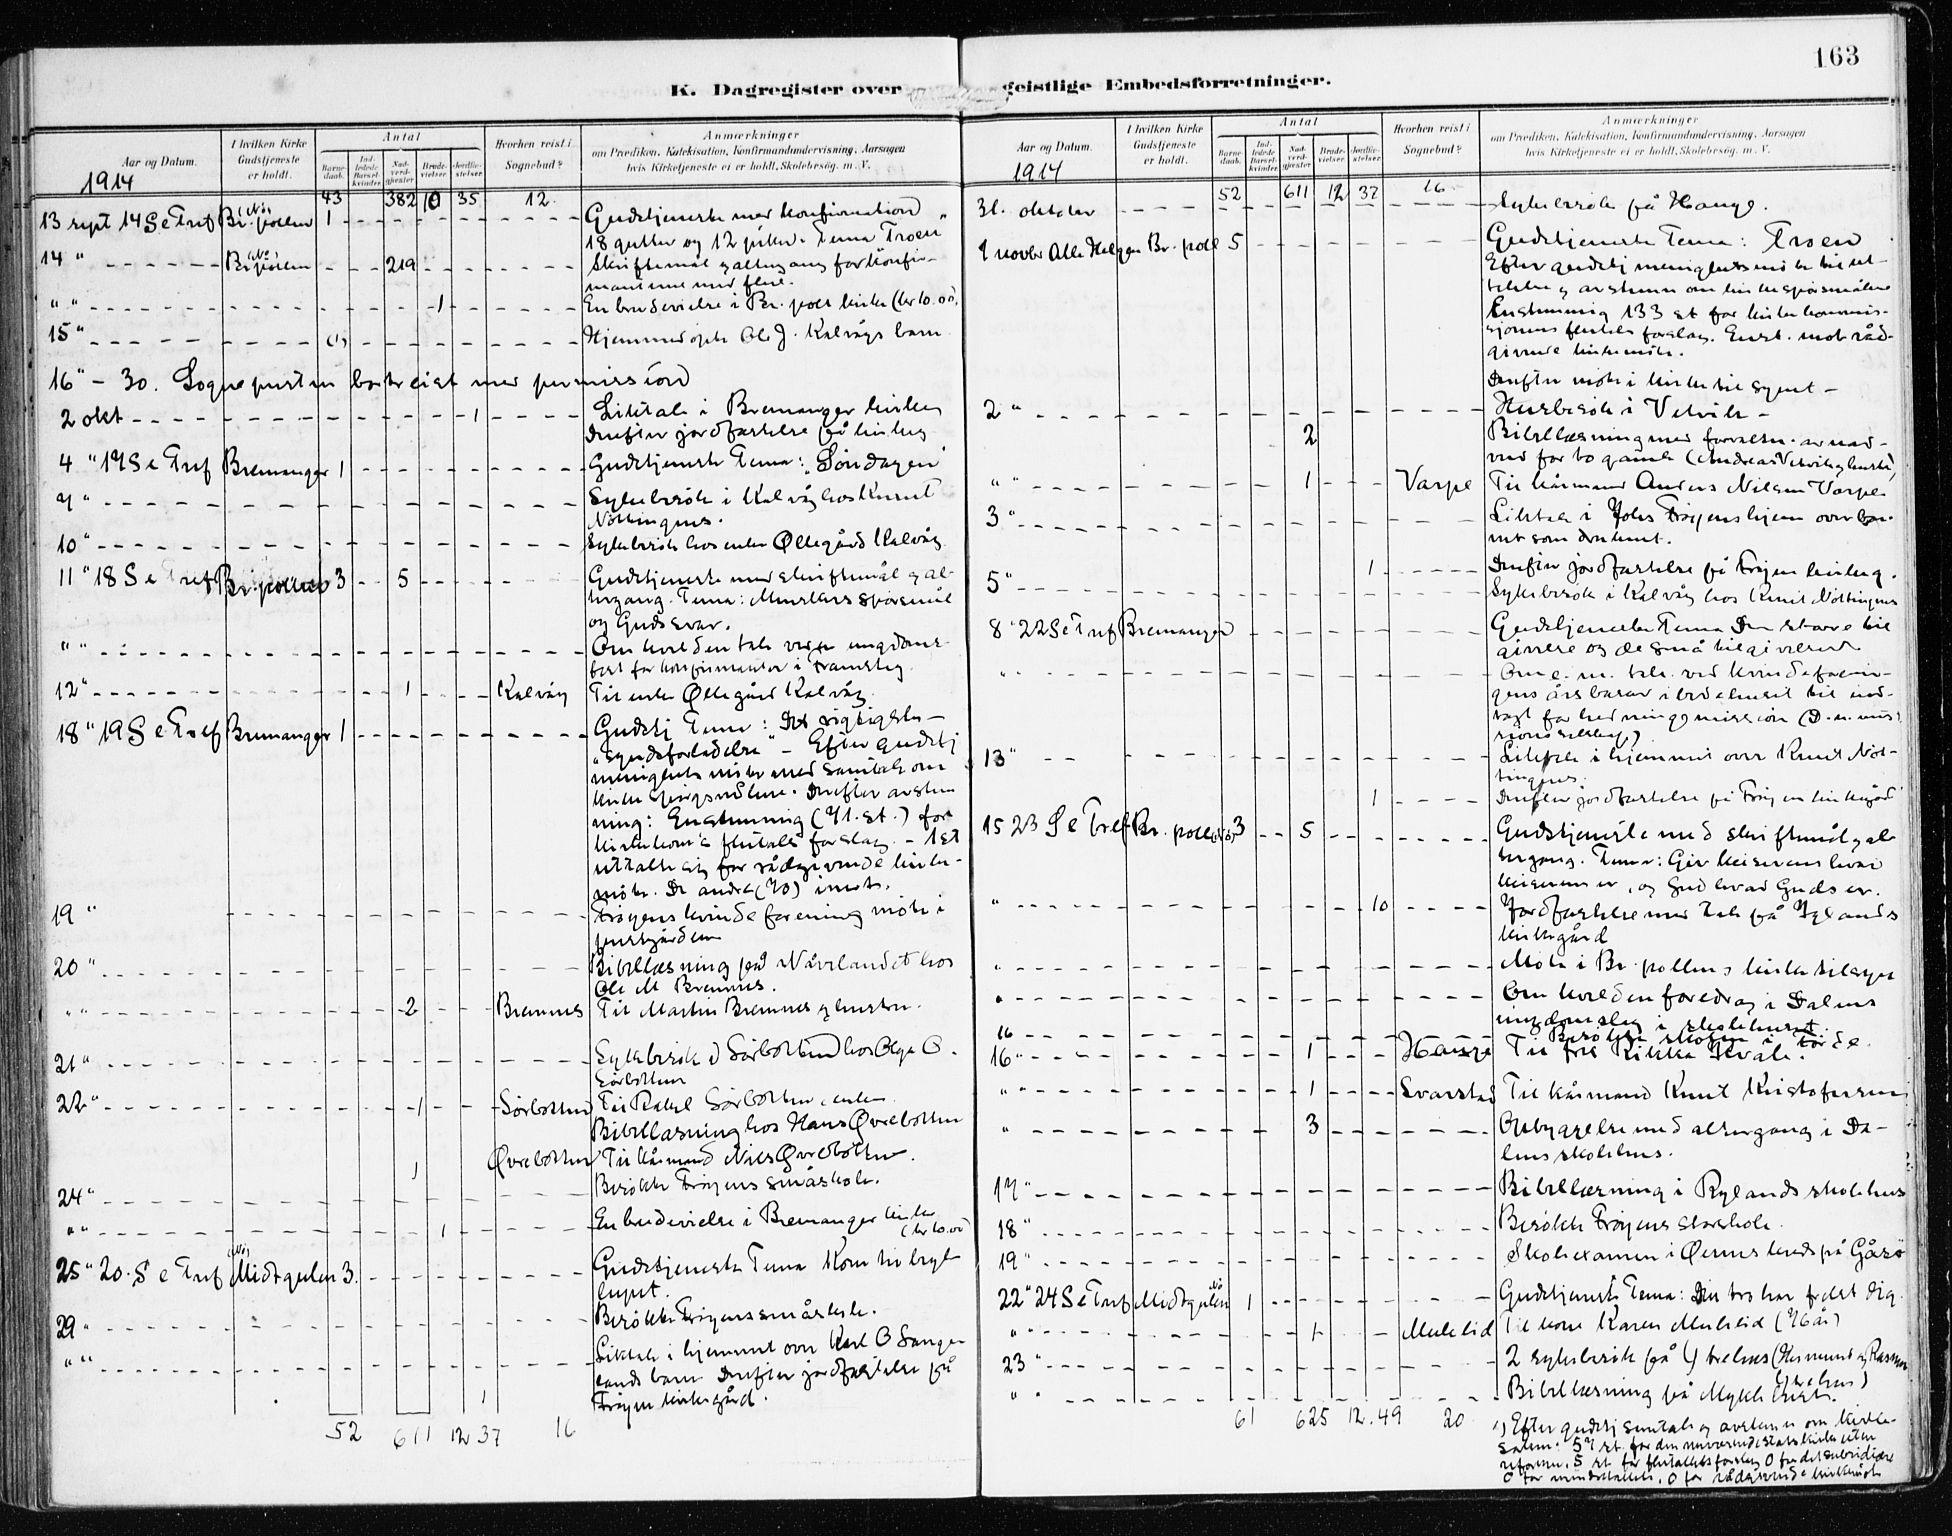 163
K. Dagregister over geistlige Embedsforretninger.
Aar og Datum.
I hvilken Kirke Gudstjeneste er holdt.
Antal
Barne-daab.
Ind-ledede Barsel-kvinder.
Nad-verd-gjester
Brude-vielser.
Jordfæ-stelser.
Hvorhen reist i Sognebud?
Anmærkninger
om Prædiken, Katekisation, Konfirmandundervisning, Aarsagen
hvis Kirketjeneste ei er holdt, Skolebesøg. m. V.
1914
43 382 10 35 12
13 sept 14 S e Tref Br. pollen (Nø) 1 Gudstjeneste med konfirmation
18 gutter og 12 piker. Tema Troen
14 " Br. pollen (Nø) 219 Skriftemål og altergang for konfir-
manterne med flere.
" " 1 En brudevielse i Br. poll kirke (kr 10.00)
15 " (1) Hjemmedøpt Ole J. Kalvågs barn
16 " - 30. Sognepresten bortreist med permission
2 okt 1 Liktale i Bremanger kirke
Derefter jordfæstelse på kirkeg
4 " 17 S e Tref Bremanger 1 Gudstjeneste Tema: Søndagen
7 " Sykebesøk i Kalvåg hos Knut
Nøttingnes.
10 " Sykebesøk hos enke Øllegård Kalvåg
11 " 18 S e Tref Br. pollen 3 5 Gudstjeneste med skriftemål og al-
tergang. Tema: Menneskers spørsmål
og Guds svar.
" " Om kvelden tale ungdoms-
fest for konfirmanter i
12 " 1 Kalvåg Til enke Øllegård Kalvåg
18 " 19 S e Tref Bremanger 1 Gudstj Tema: Det vigtigste –
"syndsforladelse" – Efter gudstj
menighetsmøte med samtale om
kirkespørgsmålene. Derefter avstem
ning: Enstemmig (71. st.) for
kirkekom's flertals forslag. – 1 st
uttalte sig for rådgivende kirke-
møte. De andre (70) imot.
19 " Frøyens kvindeforening møte i
prestgården
20 " Bibellæsning på Nåvelandet hos
Ole M Bremnes.
" " 2 Bremnes Til Martin Bremnes og hustru.
21 " Sykebesøk i Sørbotten hos Olga O.
Sørbotten
22 " 1 Sørbotten Til Rakel Sørbotten, enke
Bibellæsning hos Hans Øvrebotten
1 Øvrebotten Til kårmand Nils Øvrebotten.
24 " Besøkte Frøyens småskole.
" " 1 En brudevielse i Bremanger kirke
(kr 10.00)
25 " 20. S e Tref Midtgulen (Nø) 3. Gudstjeneste Tema Kom til bryl
lupet.
29 " Besøkte Frøyens småskole.
" " Liktale i hjemmet over Karl O
lands barn Derefter jordfæstelse på
1 Frøyen kirkegård.
52 611 12 37 16
Aar og Datum.
I hvilken Kirke Gudstjeneste er holdt.
Antal
Barne-daab.
Ind-ledede Barsel-kvinder.
Nad-verd-gjester
Brude-vielser.
Jordfæ-stelser.
Hvorhen reist i Sognebud?
Anmærkninger
om Prædiken, Katekisation, Konfirmandundervisning, Aarsagen
hvis Kirketjeneste ei er holdt, Skolebesøg. m. V.
1914
52 611 12 37 16
31. oktober Sykebesøk på Hauge.
1 novbr Alle Helgen Br. poll 5 Gudstjeneste Tema: Troen
Efter gudstj menighetsmøte til ut-
talelse og avstemn om kirkespørsmålene
Enstemmig 133 st for kirkekommis-
sjonens flertals forslag. Enst. mot råd-
givende kirkemøte.
Derefter møte i kirketilsynet –
2 " Husbesøk i Vetvik –
2 Bibellæsning med forrettn. av nad-
verd for to gamle (Andreas Vetvik og hustru)
" " 1 Varpe Til kårmand Anders Nilsen Varpe
3 " Liktale i Johs Frøyens hjem over bar-
net som druknet.
1 Derefter jordfæstelse på Frøyen kirkeg.
5 " Sykebesøk i Kalvåg hos Knut Nøttingnes
8 " 22 S e Tref Bremanger Gudstjeneste Tema Den store til
givere og de små tilgivere
" Om e. m. tale ved kvindeforenin-
gens årsbasar i bedehuset til ind-
tægt for hedningemissionen (D. n. mis-
sionsselskap)
13 " Liktale i hjemmet over Knut Nøt-
tingnes.
1 Derefter jordfæstelse på Frøyen kirkegård
15 23 S e Tref Br. pollen (Nø) 3 5 Gudstjeneste med skriftemål og al
tergang. Tema: Giv keiseren hvad
keiserens er, og Gud hvad Guds er.
" 10 Jordfæstelse med tale på Rylands
kirkegård
" Møte i Br. pollens kirketilsyn
" Om kvelden foredrag i Dalens
ungdomslag i skolehuset.
16 Besøkte skolen i Førde.
16 " 1 Hauge Til frk Rikka Kvåle.
" " 1 Svarstad Til kårmand Knut Kristoffersen
" 3 Opbyggelse med altergang i Da-
lens skolehus.
17 " Bibellæsning i Rylands skolehus
18 " Besøkte Frøyens storskole.
19 " Skoleexamen i Ørnes kreds på Gåsø
22 " 24 S e Tref Midtgulen (Nø) 1 Gudstjeneste Tema: Din tro har frelst dig
" " 1 Mulelid Til kone Karen Mulelid (76 år)
23 " 2 sykebesøk på
" " Bibellæsning på Myklebust.
61 625 12. 49 20
1) Efter gudstj samtale og avstemn om kirke-
saken: 57 st. for den nuværende statskirke uten
reformer, 5 st for flertallets forslag 0 for det subsidiære
0 for mindretallets, 0 for rådgivende kirkemøte